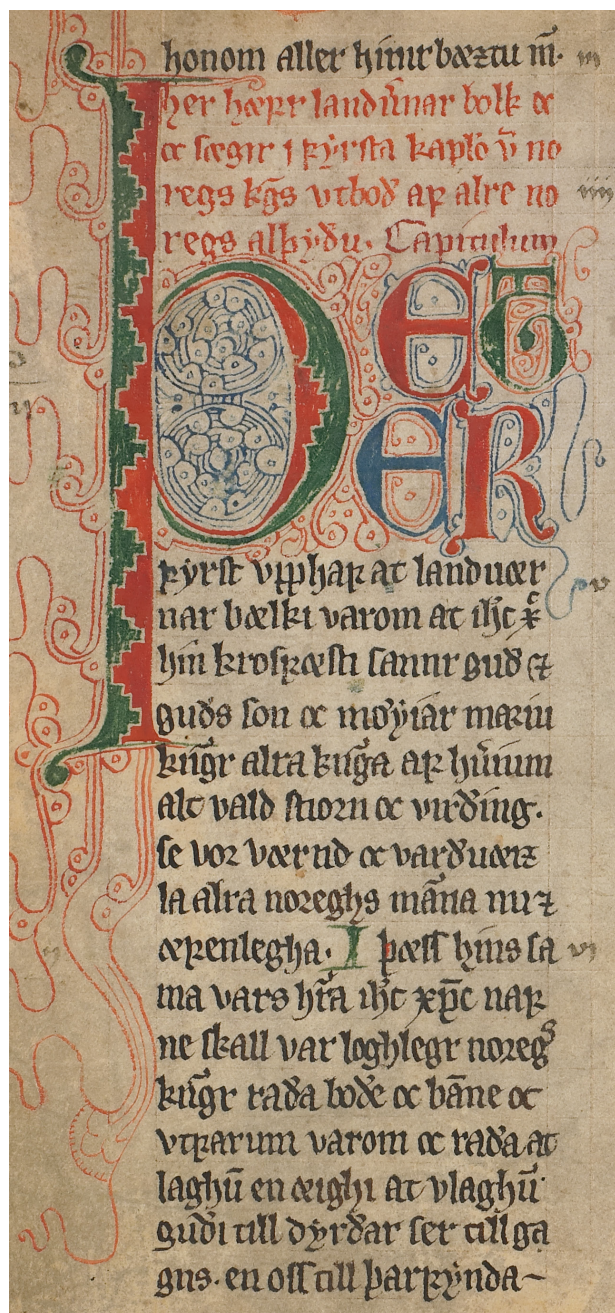 honom aller hinir bæztu m̅.
her hæfr landv̅nar bolk oc
oc sægir j fyrsta kapl̅o v̅ no
regs kgs vtboð af alre no
regs alþyðu. Capitulum
ÞET
ER
fyrst vpphaf at landuær
nar bælki varom at ih̅c x̅c
hin krosfæsti sannr guð ꝫ
guðs son oc møyiar mariu
kn̅gr alra kn̅ga af hv̅ium
alt vald stiorn oc virðing.
se vor værnd oc varðuæiz
la alra noreghs man̅a nu ꝫ
æfenlegha. I þæss hins sa
ma vars hr̅a ih̅c xp̅c naf
ne skall var loghlegr noregs
kn̅gr raða boðe oc ban̅e oc
vtfarum varom oc raða at
laghu̅ en æighi at vlaghu̅
guði till dyrðar ser till ga
gns. en oss till þarfynda~